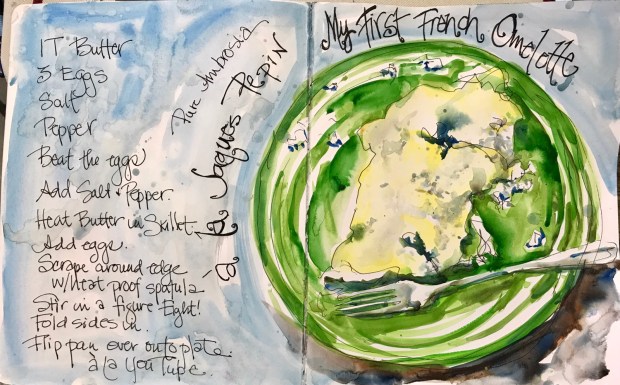 1T Butter
3 Eggs
Salt
Pepper
Beat the eggs
Add Salt & Pepper.
Heat Butter in Skillet.
Add eggs.
Scrape around edge
w/heat proof spatula
Stir in a figure Eight!
Fold sides in.
Flip pan over onto plate.
à la YouTube.
Pure Ambrosia
à la Jaques Pepin
My First French Omelette